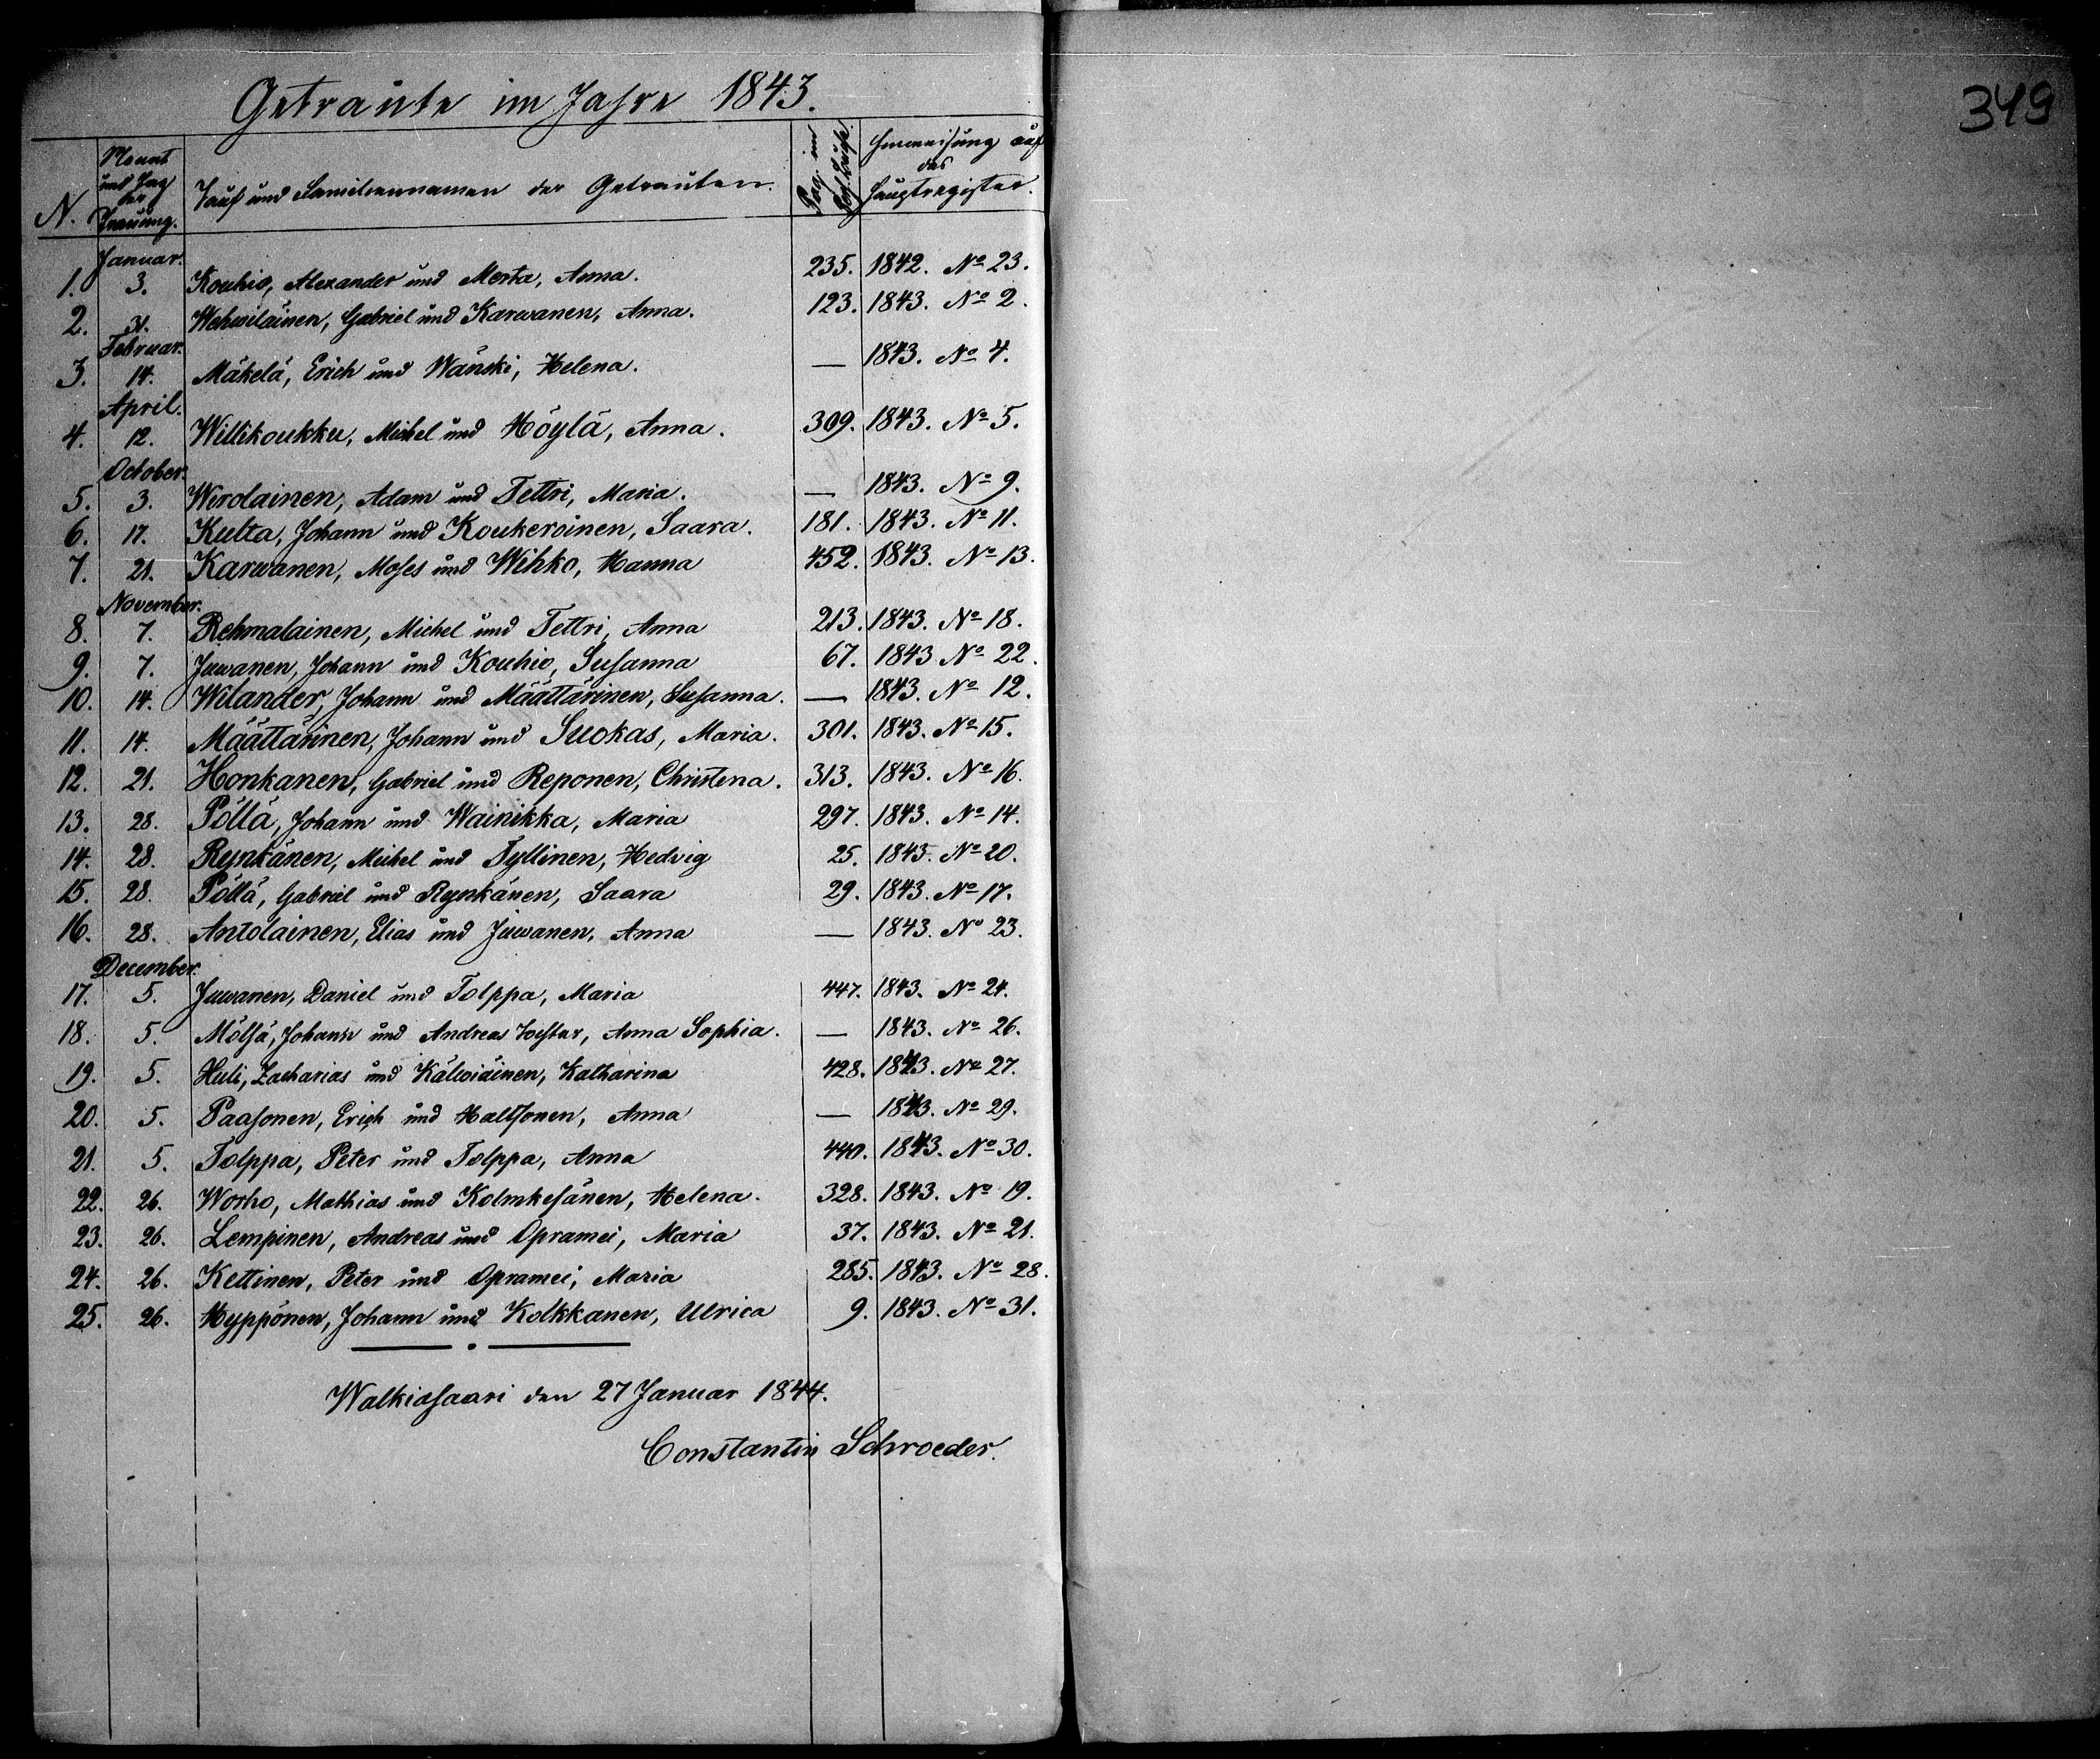 Getraute im Jahre 1843.
349
N. Monat und Tag der Trauung. Tauf und Familiennamen der Getrauten. Pag. im Hinweisung auf das Hauptregister.
Januar.
1. 3. Kouhio, Alexander und Morta, Anna. 235. 1842. No 23.
2. 31. Wehwiläinen, Gabriel und Karwanen, Anna. 123. 1843. No 2.
Februar.
3. 14. Mäkelä, Erich und Wänski, Helena. — 1843. No 4.
April.
4. 12. Willikoukku, Michel und Höylä, Anna. 309. 1843. No 5.
October.
5. 3. Wirolainen, Adam und Tettri, Maria. — 1843. No 9.
6. 17. Kulta, Johann und Koukeroinen, Saara. 181. 1843. No 11.
7. 21. Karwanen, Moses und Wihko, Hanna 452. 1843. No 13.
November.
8. 7. Rehmalainen, Michel und Tettri, Anna 213. 1843. No 18.
9. 7. Juwanen, Johann und Kouhio, Susanna 67. 1843 No 22.
10. 14. Wilander, Johann und Määttärinen, Susanna. — 1843. No 12.
11. 14. Määttärinen, Johann und Suokas, Maria. 301. 1843. No 15.
12. 21. Honkanen, Gabriel und Reponen, Christena. 313. 1843. No 16.
13. 28. Pöllä, Johann und Wainikka, Maria 297. 1843. No 14.
14. 28. Rynkänen, Michel und Tyllinen, Hedvig 25. 1843. No 20.
15. 28. Pöllä, Gabriel und Rynkänen, Saara 29. 1843. No 17.
16. 28. Antolainen, Elias und Juwanen, Anna — 1843. No 23.
December.
17. 5. Juwanen, Daniel und Tolppa, Maria 447. 1843. No 24.
18. 5. Mölsä, Johann und Andreas Tochter, Anna Sophia. — 1843. No 26.
19. 5. Huli, Zacharias und Kälwiäinen, Katharina 428. 1843. No 27.
20. 5. Paasonen, Erich und Haltsonen, Anna — 1843. No 29.
21. 5. Tolppa, Peter und Tolppa, Anna 440. 1843. No 30.
22. 26. Worho, Mathias und Kolmkesänen, Helena. 328. 1843. No 19.
23. 26. Lempinen, Andreas und Opramei, Maria 37. 1843. No 21.
24. 26. Kettinen, Peter und Opramei, Maria 285. 1843. No 28.
25. 26. Hyppönen, Johann und Kolkkanen, Ulrica 9. 1843. No 31.
Walkiasaari den 27 Januar 1844.
Constantin Schroeder.